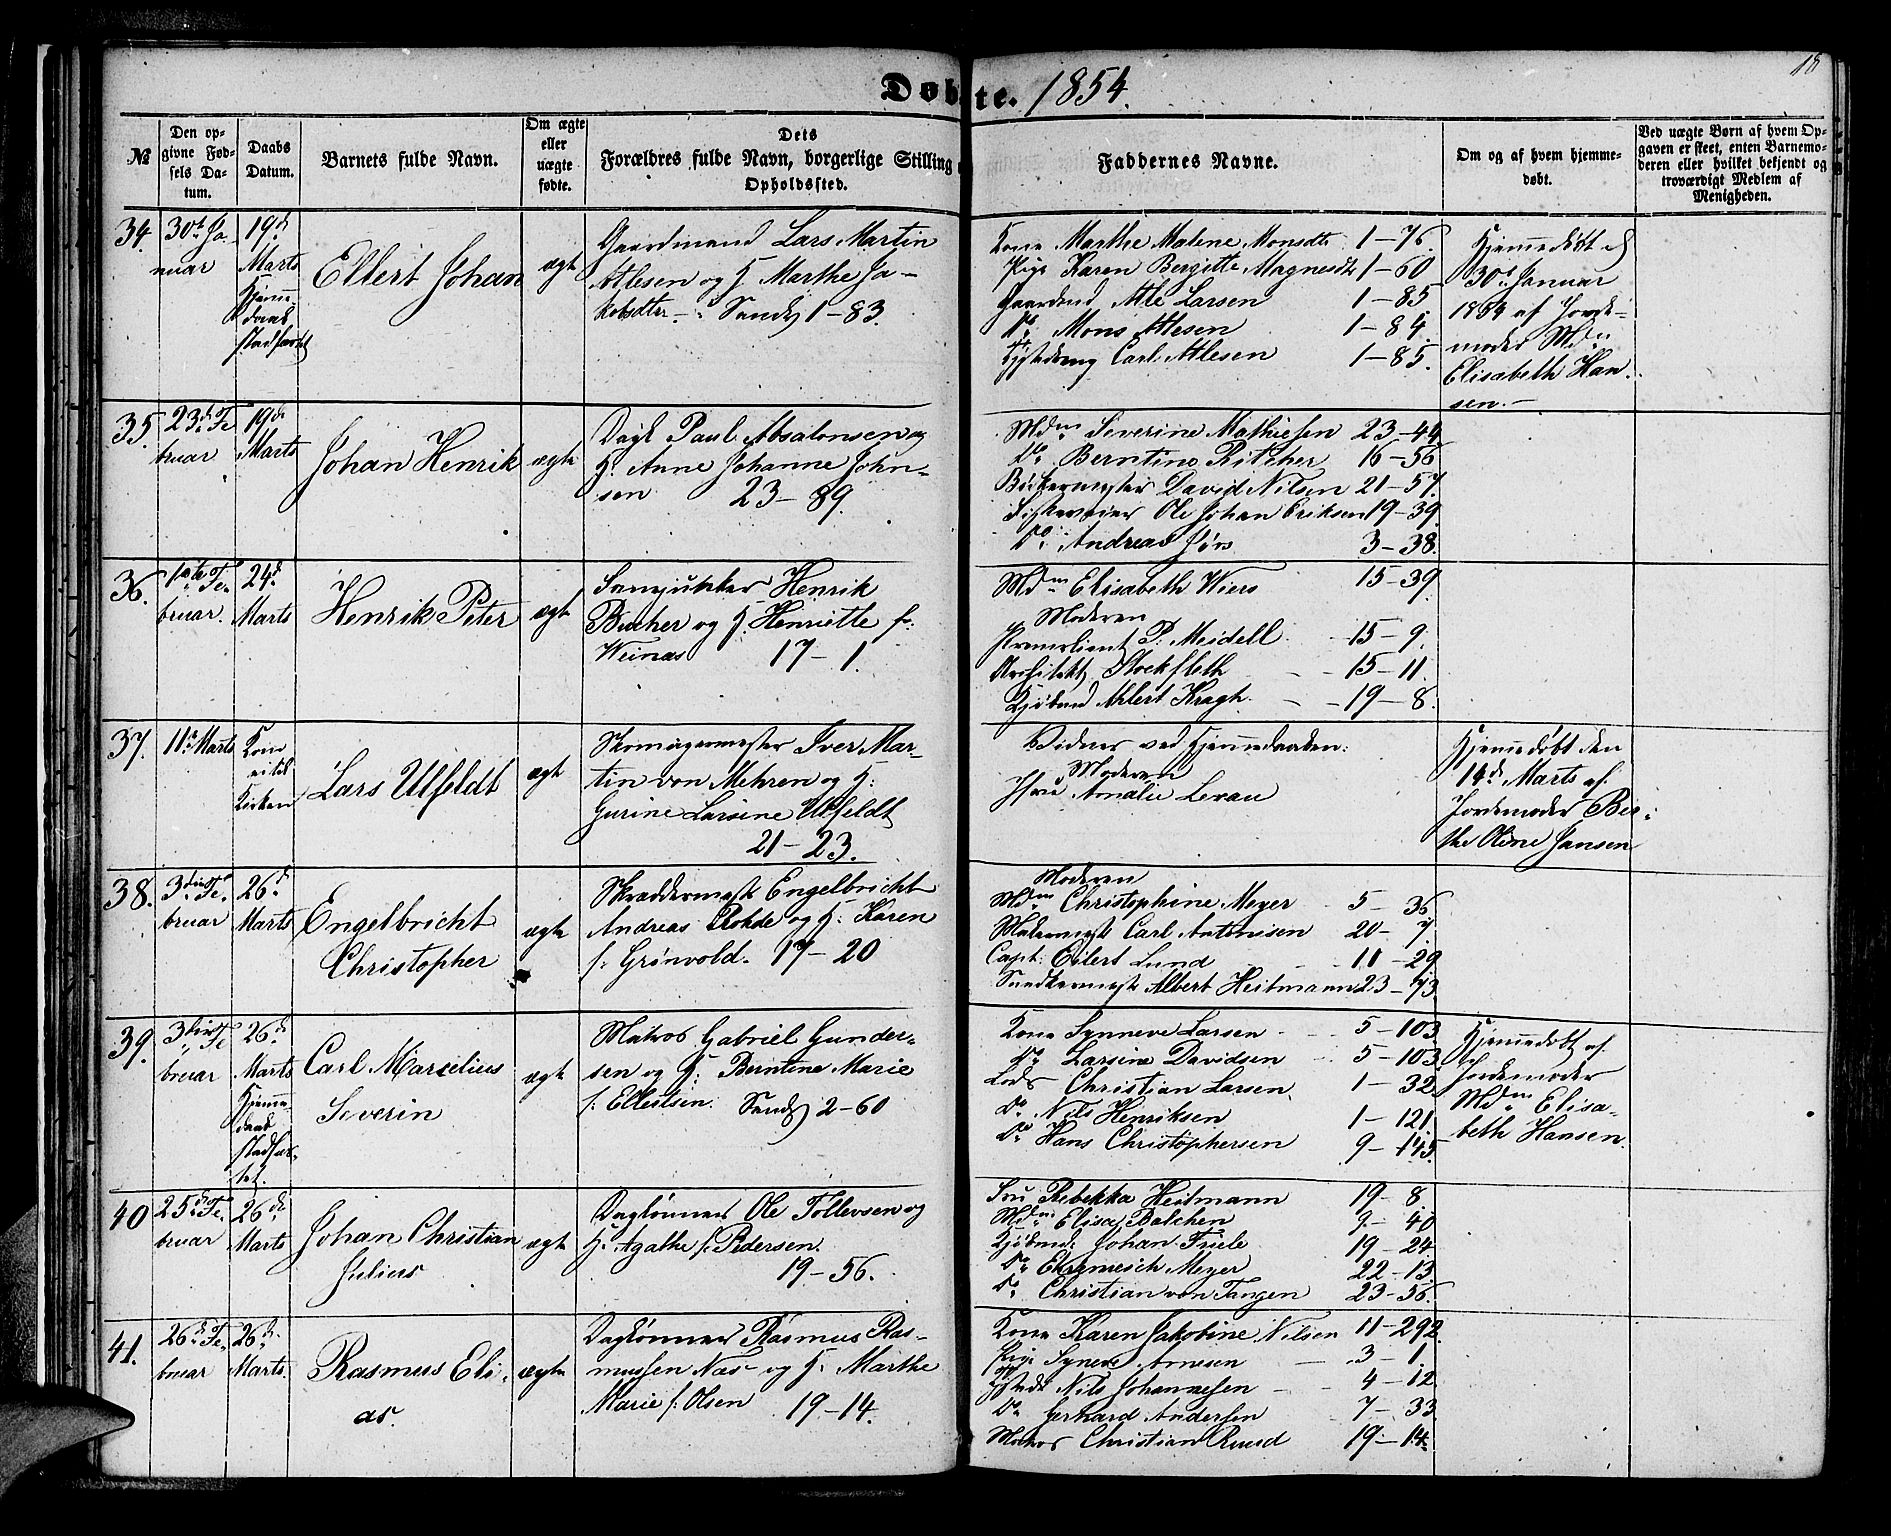 Døbte. 1854.
18
№
Den op-
givne Fød-
sels Da-
tum.
Daabs
Datum.
Barnets fulde Navn.
Om ægte
eller
uægte
fødte.
Dets
Forældres fulde Navn, borgerlige Stilling
Opholdssted.
Faddernes Navne.
Om og af hvem hjemme-
døbt.
Ved uægte Børn af hvem Op-
gaven er skeet, enten Barnemo-
deren eller hvilket bekjendt og
troværdigt Medlem af
Menigheden.
34.
30te Ja-
nuar
19de
Marts
Hjemme-
daab
stadfæstet
Ellert Johan
ægte
Gaardmand Lars Martin
Atlesen og H. Marthe Ja-
kobsdtr. Sandv 1-83.
Kone Marthe Malene Monsdtr 1-76.
Pige Karen Bergitte Magnesdtr 1-60
Gaardmd Atle Larsen 1-85
Do Mons Atlesen 1-84.
Carl Atlesen 1-85.
Hjemmedøbt d
30te Januar
1854 af Jorde-
moder Mdm
Elisabeth Han-
sen.
35.
23de Fe
bruar
19de
Marts
Johan Henrik
ægte
Dagl Paul Absalonsen og
H. Anne Johanne John-
sen 23-89.
Mdm Severine Mathiesen 23-44
Do Berntine Ritcher 16-56
Bødkermester David Nilsen 21-57.
Ole Johan Eriksen 19-39.
Do Andreas Jørs 3-38.
36.
1ste Fe-
bruar.
24de
Marts
Henrik Peter
ægte
Henrik
Bucher og H. Henriette f.
Weinas 17-1.
Mdm Elisabeth Wiers 15-39.
Moderen
Premierlieut P. Meidell 15-9.
Arkitekt Stockfleth 15-11.
Kjøbmd Ahlert Kragh. 19-8.
37.
11te Marts
Kom
ei til
Kirken
Lars Ulfeldt
ægte
Skomagermester Iver Mar-
tin von Mehren og H.
Gurine Larsine Ulfeldt
21-23.
Vidner ved Hjemmedaaben:
Moderen
Amalie Levau
Hjemmedøbt den
14de Marts af
Jordemoder Ber-
the Oline Jansen
38.
3die Fe
bruar
26de
Marts
Engelbricht
Christopher
ægte
Skræddermest Engelbricht
Andreas Rohde og H. Karen
f. Grönvold. 17-20
Moderen
Mdm Christophine Meyer 5-36
Malermest Carl Antonisen 20-7
Capt: Eilert Lund 11-29
Snedkermest Albert Heitmann 23-73.
39.
3die Fe
bruar
26de
Marts
Hjemme-
daab
stadfæs-
tet.
Carl Marcelius
Severin
ægte
Matros Gabriel Gunder-
sen og H. Berntine Marie
f. Ellertsen. Sandv 2-60
Kone Synneve Larsen 5-103
Do Larsine Davidsen 5-103
Lods Christian Larsen 1-32
Do Nils Henriksen 1-121
Do Hans Christophersen 9-115.
Hjemmedøbt af
Jordemoder
Mdm Elisa-
beth Hansen.
40
25de Fe-
bruar
26de
Marts
Johan Christian
Julius
ægte
Daglønner Ole Tollevsen og
H. Agathe f. Pedersen.
19-56.
Fru Rebekka Heitmann 19-8.
Mdm Elisa Balchen 9-40
Kjøbmd. Johan Friele 19-24
Do Ehremesch Meyer 22-13.
Do Christian von Tangen 23-56.
41.
26de Fe-
bruar
26de
Marts.
Rasmus Eli-
as.
ægte
Dagtønner Rasmus Ras-
mussen Nas og H. Marthe
Marie f. Olsen 19-14.
Kone Karen Jakobine Nilsen 11-292.
Pige Synneve Arnesen 3-1.
Nils Johannesen 4-12
Do Gerhard Andersen 7-33
Matros Christian Ruud 19-14.